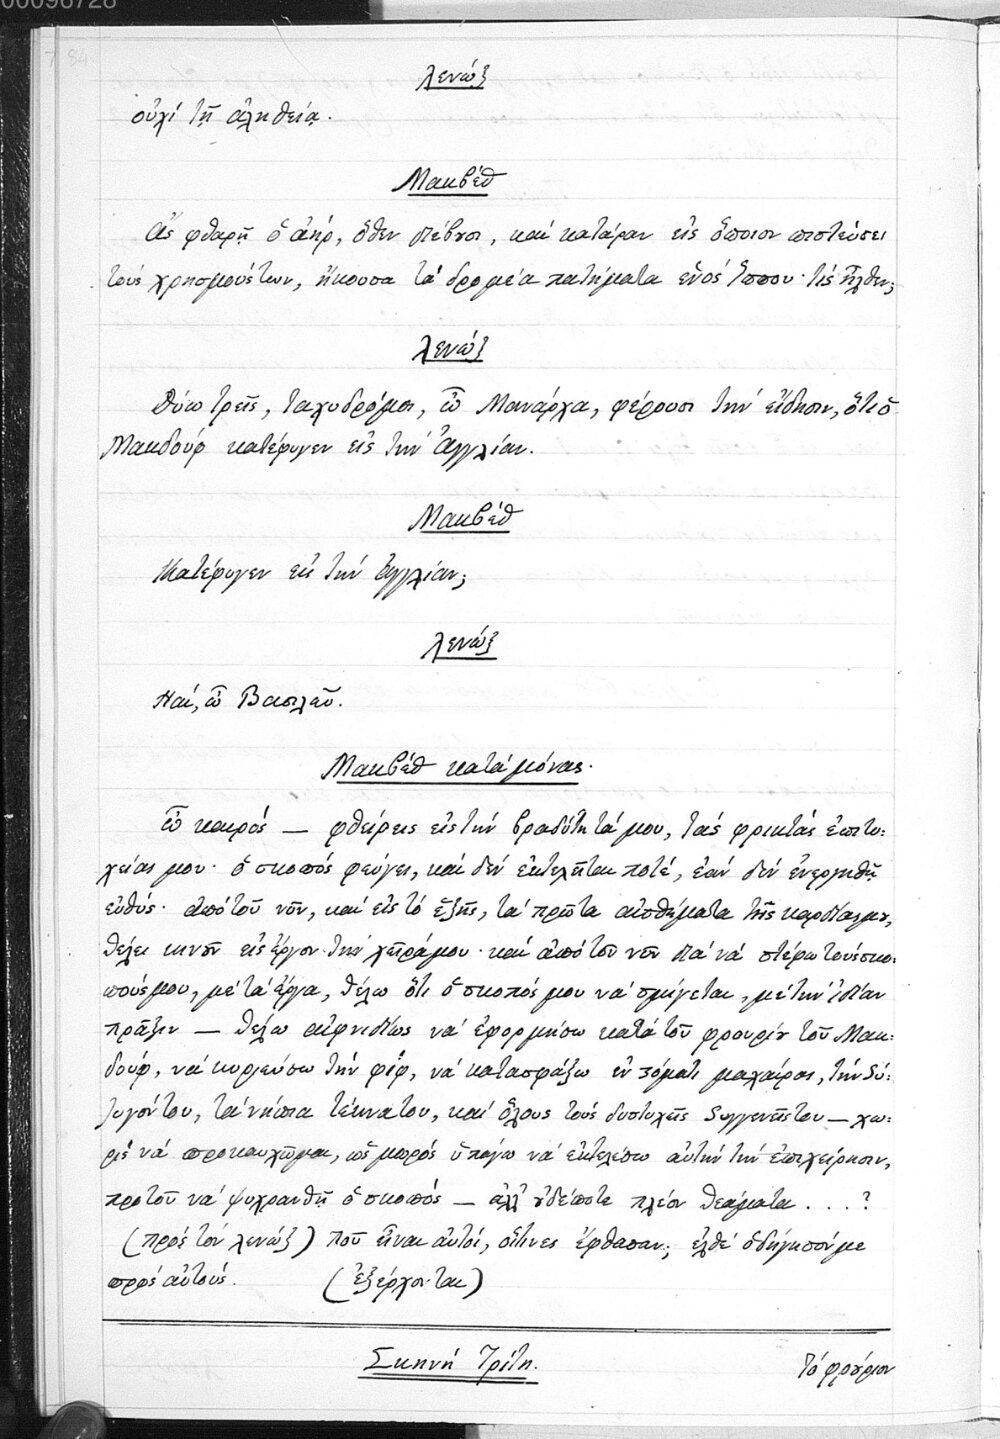 00096728
84
Λενώξ
οὐχί τῇ ἀληθείᾳ.
Μακβέθ
Ἄς φθαρῇ ὁ ἀήρ, ὅθεν φεύγουσι, καί κατάραν εἰς ὅποιον πιστεύσει
τούς χρησμούς των, ἤκουσα τά δρομέα πατήματα ἑνός ἵππου· τίς ἦλθεν;
Λενώξ
Δύω τρεῖς, ταχυδρόμοι, ὦ Μονάρχα, φέρουσι τήν εἴδησιν, ὅτι ὁ
Μακδούφ κατέφυγεν εἰς τήν Ἀγγλίαν.
Μακβέθ
Κατέφυγεν εἰς τήν Ἀγγλίαν;
Λενώξ
Ναί, ὦ Βασιλεῦ.
Μακβέθ κατά μόνας.
Ὦ καιρός — φθείρεις εἰς τήν βραδύτητά μου, τάς φρικτάς ἐπιτυ-
χείας μου· ὁ σκοπός φεύγει, καί δέν ἐκτελῆται ποτέ, ἐάν δέν ἐνεργηθῇ
εὐθύς· ἀπό τοῦ νῦν, καί εἰς τό ἑξῆς, τά πρῶτα αἰσθήματα τῆς καρδίας μου,
θέλει κινοῦν εἰς ἔργον τήν χεῖρά μου· καί ἀπό τοῦ νῦν διά νά στέψω τούς σκο-
πούς μου, μέ τά ἔργα, θέλω ὅτι ὁ σκοπός μου νά σμίγεται, μέ τήν ἰδίαν
πρᾶξιν — θέλω αἰφνιδίως νά ἐφορμήσω κατά τοῦ φρουρίου τοῦ Μακ-
δούφ, νά κυριεύσω τήν φίφ, νά κατασφάξω ἐν στόματι μαχαίρας, τήν σύ-
ζυγόν του, τά νήπια τέκνα του, καί ὅλους τούς δυστυχεῖς συγγενεῖς του — χω-
ρίς νά προκαυχῶμαι, ὡς μωρός ὑπάγω νά ἐκτελέσω αὐτήν τήν ἐπιχείρησιν,
προτοῦ νά ψυχρανθῇ ὁ σκοπός — ἀλλ' οὐδέποτε πλέον θεάματα . . . ?
(πρός τόν Λενώξ) ποῦ εἶναι αὐτοί, οἵτινες ἔφθασαν; ἐλθέ ὁδήγησόν με
πρός αὐτούς. (ἐξέρχονται)
Σκηνή Τρίτη.
Τό φρούριον